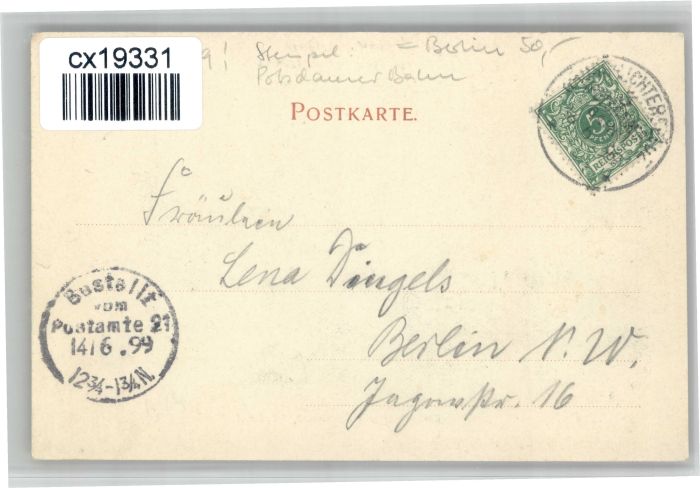 cx19331
9! Stempel: = Berlin 50,-
Potsdamer Bahn
POSTKARTE.
LICHTERF
5
PFENNIG
REICHSPOST
Fräulein
Lena Dingels
Berlin N.W.
Jagowstr. 16
Bestellt
vom
Postamte 21
14/6.99
12¾-1¾N.